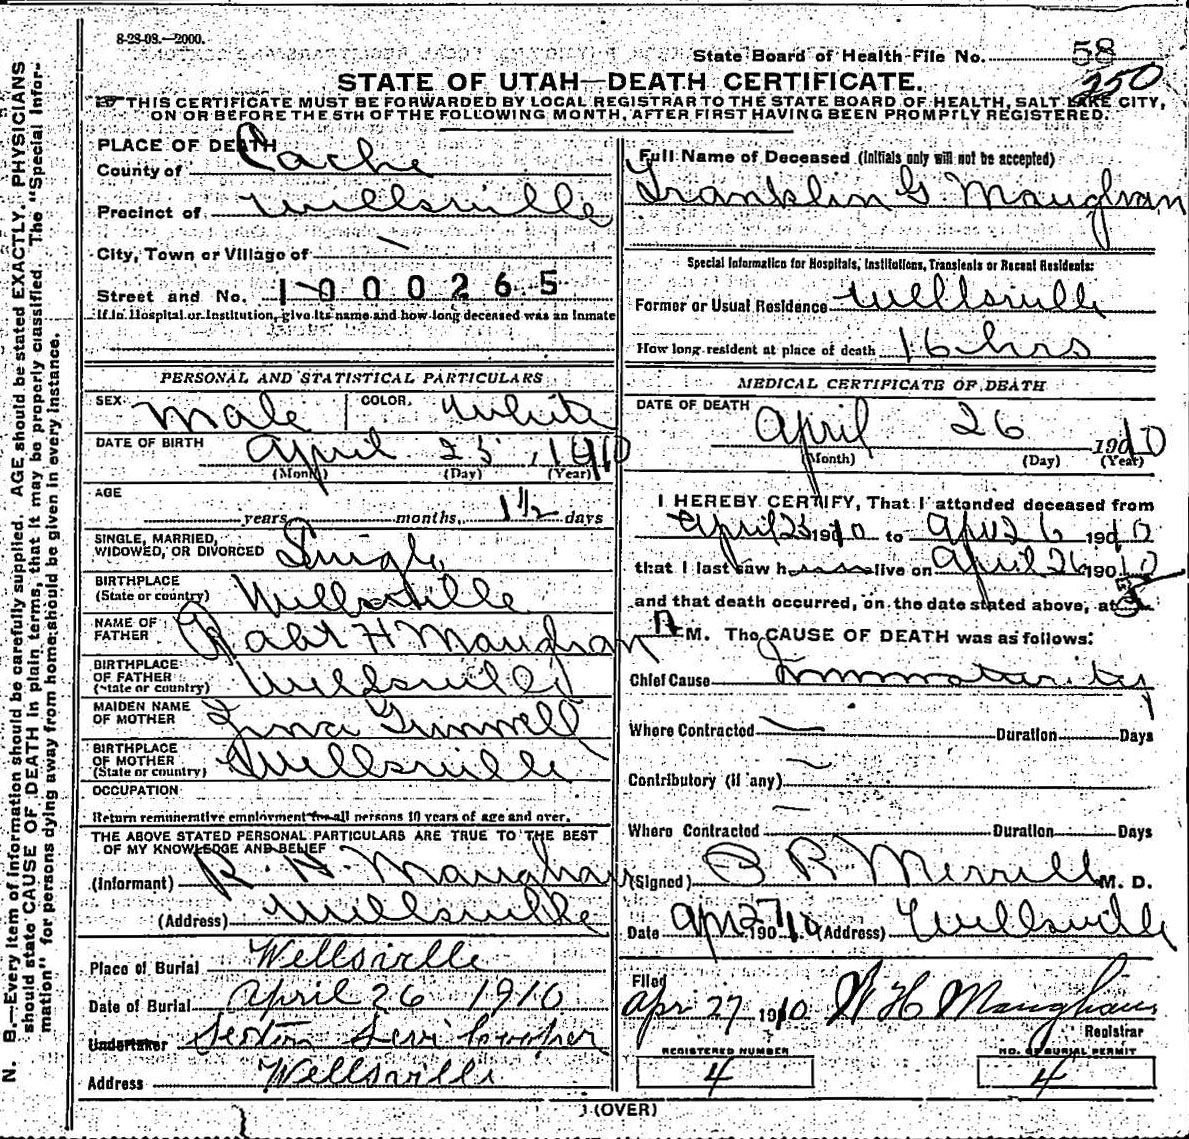 8-28-08.—2000.
State Board of Health-File No. 58
250
STATE OF UTAH—DEATH CERTIFICATE.
THIS CERTIFICATE MUST BE FORWARDED BY LOCAL REGISTRAR TO THE STATE BOARD OF HEALTH, SALT LAKE CITY,
ON OR BEFORE THE 5TH OF THE FOLLOWING MONTH, AFTER FIRST HAVING BEEN PROMPTLY REGISTERED.
PLACE OF DEATH
County of Cache
Precinct of Wellsville
City, Town or Village of —
Street and No. 1000265
If in Hospital or Institution, give its name and how long deceased was an Inmate
PERSONAL AND STATISTICAL PARTICULARS
SEX Male COLOR White
DATE OF BIRTH April 25, 1910
(Month) (Day) (Year)
AGE
years months, 1½ days
SINGLE, MARRIED,
WIDOWED, OR DIVORCED Single
BIRTHPLACE
(State or country) Wellsville
NAME OF
FATHER Robt H Maughan
BIRTHPLACE
OF FATHER
(State or country) Wellsville
MAIDEN NAME
OF MOTHER Gunnell
BIRTHPLACE
OF MOTHER
(State or country) Wellsville
OCCUPATION
Return remunerative employment for all persons 10 years of age and over.
THE ABOVE STATED PERSONAL PARTICULARS ARE TRUE TO THE BEST
OF MY KNOWLEDGE AND BELIEF
(Informant) R. H. Maughan
(Address) Wellsville
Place of Burial Wellsville
Date of Burial April 26 1910
Undertaker Sexton Levi Cooper
Address Wellsville
Full Name of Deceased (Initials only will not be accepted)
Franklin G. Maughan
Special Information for Hospitals, Institutions, Transients or Recent Residents:
Former or Usual Residence Wellsville
How long resident at place of death 16 hrs
MEDICAL CERTIFICATE OF DEATH
DATE OF DEATH
April 26 1910
(Month) (Day) (Year)
I HEREBY CERTIFY, That I attended deceased from
April 25 1910 to Apr 26 1910
that I last saw h alive on April 26 1910
and that death occurred, on the date stated above, at
M. The CAUSE OF DEATH was as follows:
Chief Cause Immaturity
Where Contracted — Duration Days
Contributory (if any) —
—
Where Contracted Duration Days
(Signed) R Merrill M. D.
Date Apr 27 1910 (Address) Wellsville
Filed
Apr 27 1910 W H Maughan
Registrar
REGISTERED NUMBER
4
NO. OF BURIAL PERMIT
4
(OVER)
N. B.—Every item of information should be carefully supplied. AGE should be stated EXACTLY. PHYSICIANS
should state CAUSE OF DEATH in plain terms, that it may be properly classified. The "Special Infor-
mation" for persons dying away from home should be given in every instance.